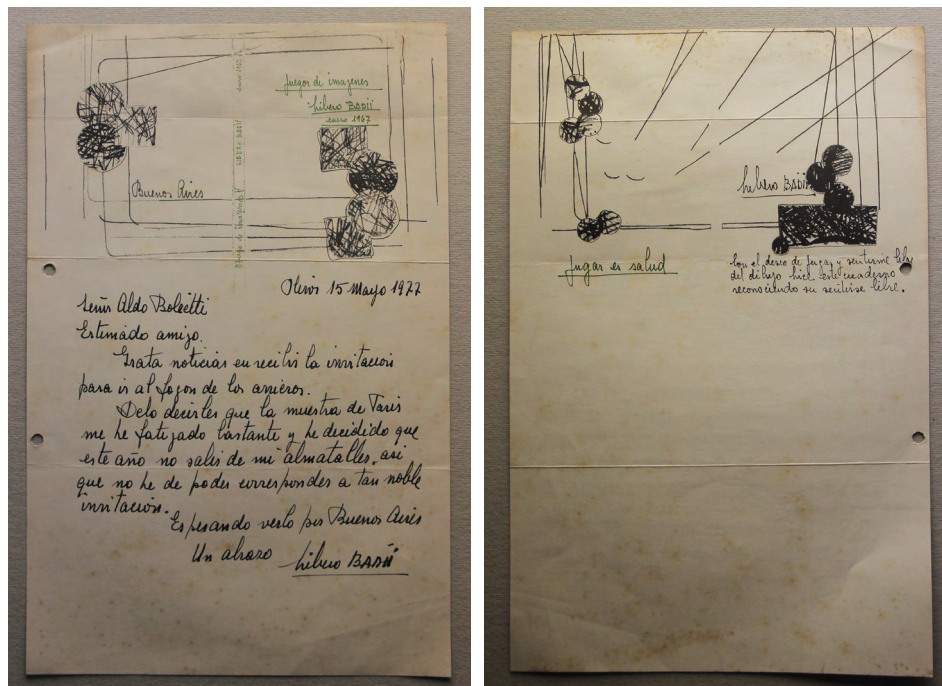 Juegos de imagenes
Libero BADII
enero 1967
LIBERO BADII
Buenos Aires
Olivos 15 Mayo 1977
Señor Aldo
Estimado amigo.
Grata noticias en recibir la invitacion
para ir al fogon de los arrieros.
Debo decirles que la muestra de Paris
me he fatigado bastante y he decidido que
este año no salir de mi almatalles, asi
que no he de poder corresponder a tan noble
invitacion.
Esperando verlo por Buenos Aires
Un abrazo Libero BADII
Libero BADII
Jugar es salud
Con el deseo de jugar y sentirme libre
del dibujo hice este cuaderno
reconociendo su sentirse libre.